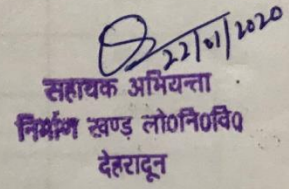 22/01/2020
सहायक अभियन्ता
निर्माण खण्ड लो०नि०वि०
देहरादून